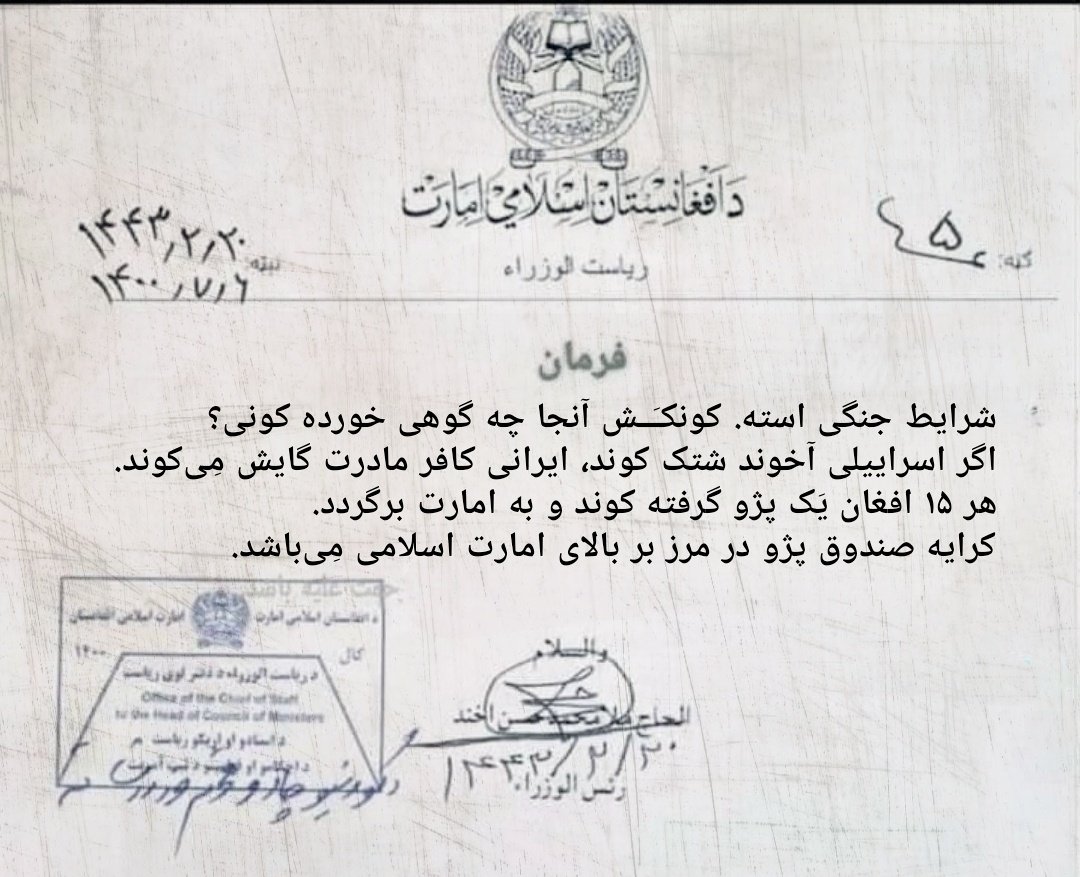 د افغانستان اسلامي امارت
ریاست الوزراء
ګڼه: ۵
نېټه: ۱۴۴۳/۲/۲۰
۱۴۰۰/۷/۶
فرمان
شرایط جنگی استه. کونکَــش آنجا چه گوهی خورده کونی؟
اگر اسراییلی آخوند شتک کوند، ایرانی کافر مادرت گایش مِی‌کوند.
هر ۱۵ افغان یَک پژو گرفته کوند و به امارت برگردد.
کرایه صندوق پژو در مرز بر بالای امارت اسلامی مِی‌باشد.
د افغانستان اسلامي امارت
امارت اسلامی افغانستان
کال
۱۴۰۰
د ریاست الوزراء د دفتر لوی ریاست
Office of the Chief of Staff
to the Head of Council of Ministers
د اسنادو او اړیکو ریاست
والسلام
الحاج ملا محمد حسن اخند
۱۴۴۳/۲/۲۰
رئس الوزراء